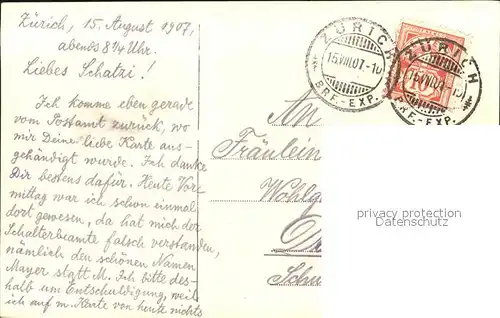 Zürich, 15. August 1907,
abends 8 1/4 Uhr.
Liebes Schatzi!
Ich komme eben gerade
vom Postamt zurück, wo
mir Deine liebe Karte aus-
gehändigt wurde. Ich danke
Dir bestens dafür. Heute Vor-
mittag war ich schon einmal
dort gewesen, da hat mich der
Schalterbeamte falsch verstanden,
nämlich den schönen Namen
Mayer statt M. Ich bitte des-
halb um Entschuldigung, weil
ich auf m. Karte von heute nichts
ZÜRICH
15.VIII.07.-10
BRF.-EXP.
ZÜRICH
15.VIII.07.-10
BRF.-EXP.
10
An
Fräulein
Wohlg
Schw
privacy protection
Datenschutz